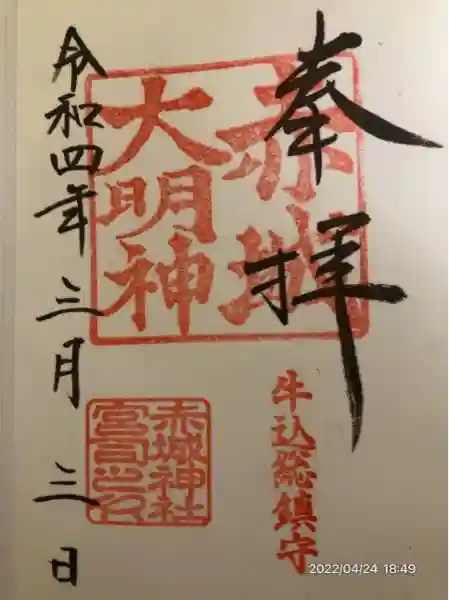 奉拝
赤城
大明神
牛込総鎮守
赤城神社
宮司之印
令和四年三月三日
2022/04/24 18:49